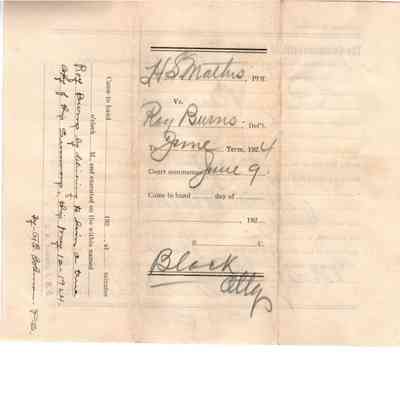 H S Mathis, Pltf.
Vs.
Roy Burns Def't.
To June Term, 1924
Court commences June 9.
Came to hand day of
, 192
S. C.
Block
Atty
Came to hand 192 at minutes
o'clock M., and executed on the within named
Roy Burns by delivering to him a true
copy of this summons, this May 12, 1924.
By